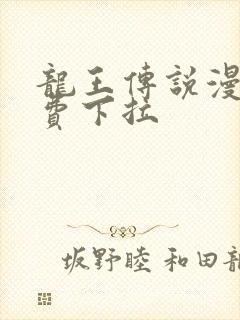 龍王傳說漫
費下拉
坂野睦 和田龍